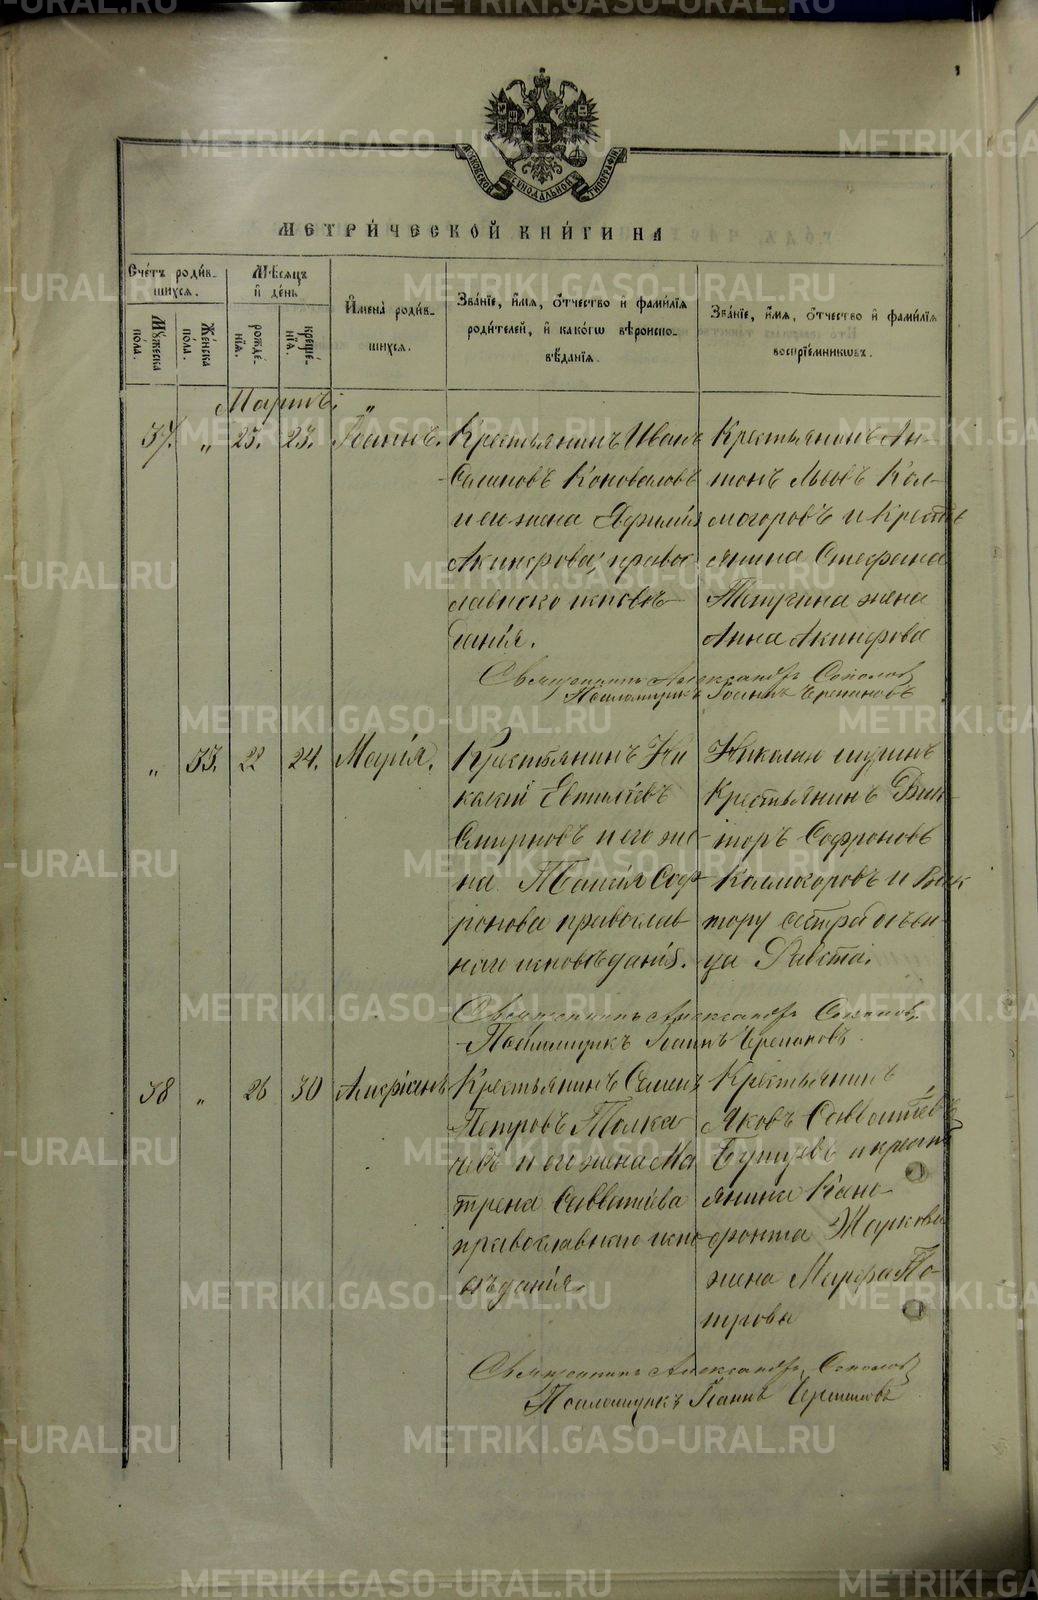 METRIKI.GASO-URAL.RU
МОСКОВСКОЙ СѴНОДАЛЬНОЙ ТИПОГРАФІИ
МЕТРИ́ЧЕСКОЙ КНИ́ГИ НА
Сче́тъ роди́в-
шихся.
Му́жеска по́ла.
Же́нска по́ла.
Мѣ́сяцъ
и҆ де́нь
рожде́нїѧ.
креще́нїѧ.
И҆мена̀ роди́в-
шихся.
Зва́нїе, и҆́мя, ѻ҆́тчество и҆ фами́лїя
роди́телей, и҆ како́гѡ вѣроиспо-
вѣ́данїя.
Зва́нїе, и҆́мя, ѻ҆́тчество и҆ фами́лїя
воспрїе́мникѡвъ.
Мартъ.
37. „ 23. Іоаннъ.
Крестьянинъ Иванъ
Коноваловъ
и его жена Евфимія
Акинфова, право
славнаго исповѣ-
данія.
Крестьянинъ Ан-
тонъ Львовъ Кол-
могоровъ и крестъ
янина Стефана
жена
Анна Акинфова
Священникъ Александръ Соколовъ
Псаломщикъ Іоаннъ Черепановъ
„ 33. 22 24. Марія.
Крестьянинъ Ни
Смирновъ и его же-
на Таисія Соф-
ронова православ
наго исповѣданія.
Крестьянинъ Вик-
торъ Софроновъ
Колмогоровъ и Вик
тору сестра дѣви-
ца
Священникъ Александръ Соколовъ
Псаломщикъ Іоаннъ Черепановъ
38 „ 26 30
Крестьянинъ Семенъ
Петровъ Толка
чевъ и его жена Ма
трена Савватіева
православнаго испо
вѣданія.
Крестьянинъ
Яковъ Савватіевъ
и крестъ
янина
жена Марфа Пе-
трова
Священникъ Александръ Соколовъ
Псаломщикъ Іоаннъ Черепановъ